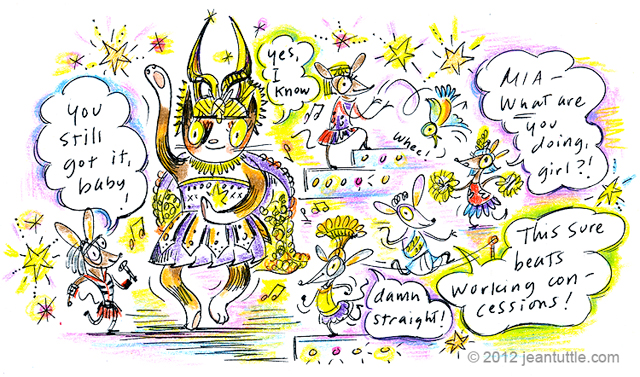 You
still
got it,
baby!
yes,
I
know
whee!
MIA -
What are
you
doing,
girl?!
This sure
beats
working con -
cessions!
damn
straight!
© 2012 jeantuttle.com